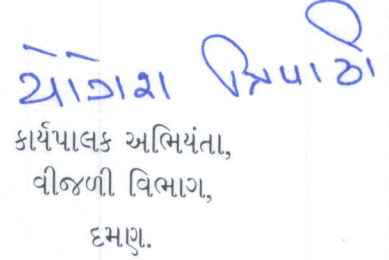 યોગેશ ત્રિપાઠી
કાર્યપાલક અભિયંતા,
વીજળી વિભાગ,
દમણ.